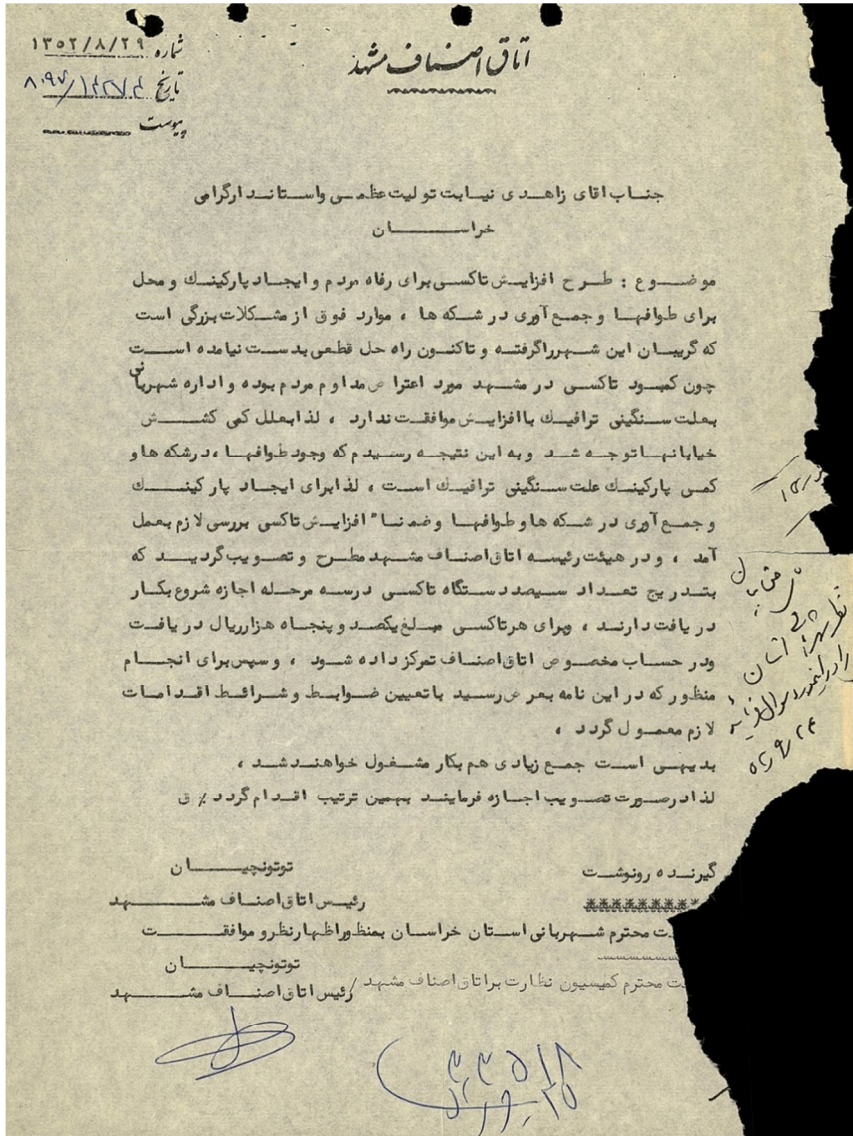 اتاق اصناف مشهد
شماره ۱۳۵۲/۸/۲۹
تاریخ
پیوست
جناب اقای زاهدی نیابت تولیت عظمی واستاندارگرامی
خراسان
موضوع : طرح افزایش تاکسی برای رفاه مردم و ایجاد پارکینک و محل
برای طوافها و جمع آوری درشکه ها ، موارد فوق از مشکلات بزرگی است
که گریبان این شهرراگرفته و تاکنون راه حل قطعی بدست نیامده است
چون کمبود تاکسی در مشهد مورد اعتراض مداوم مردم بوده و اداره شهربانی
بعلت سنگینی ترافیک با افزایش موافقت ندارد ، لذا بعلل کمی کشش
خیابانها توجه شد و به این نتیجه رسیدم که وجود طوافها ، درشکه ها و
کمی پارکینک علت سنگینی ترافیک است ، لذا برای ایجاد پارکینک
و جمع آوری درشکه ها و طوافها و ضمنا" افزایش تاکسی بررسی لازم بعمل
آمد ، و در هیئت رئیسه اتاق اصناف مشهد مطرح و تصویب گردید که
بتدریج تعداد سیصد دستگاه تاکسی درسه مرحله اجازه شروع بکار
دریافت دارند ، وبرای هرتاکسی مبلغ یکصد و پنجاه هزارریال دریافت
ودر حساب مخصوص اتاق اصناف تمرکز داده شود ، و سپس برای انجام
منظور که در این نامه بعرض رسید با تعیین ضوابط و شرائط اقدامات
لازم معمول گردد ،
بدیهی است جمع زیادی هم بکار مشغول خواهند شد ،
لذا درصورت تصویب اجازه فرمایند بهمین ترتیب اقدام گردد ٪ ق
توتونچیان
رئیس اتاق اصناف مشهد
گیرنده رونوشت
محترم شهربانی استان خراسان بمنظور اظهارنظر و موافقت
توتونچیان
محترم کمیسیون نظارت بر اتاق اصناف مشهد / رئیس اتاق اصناف مشهد